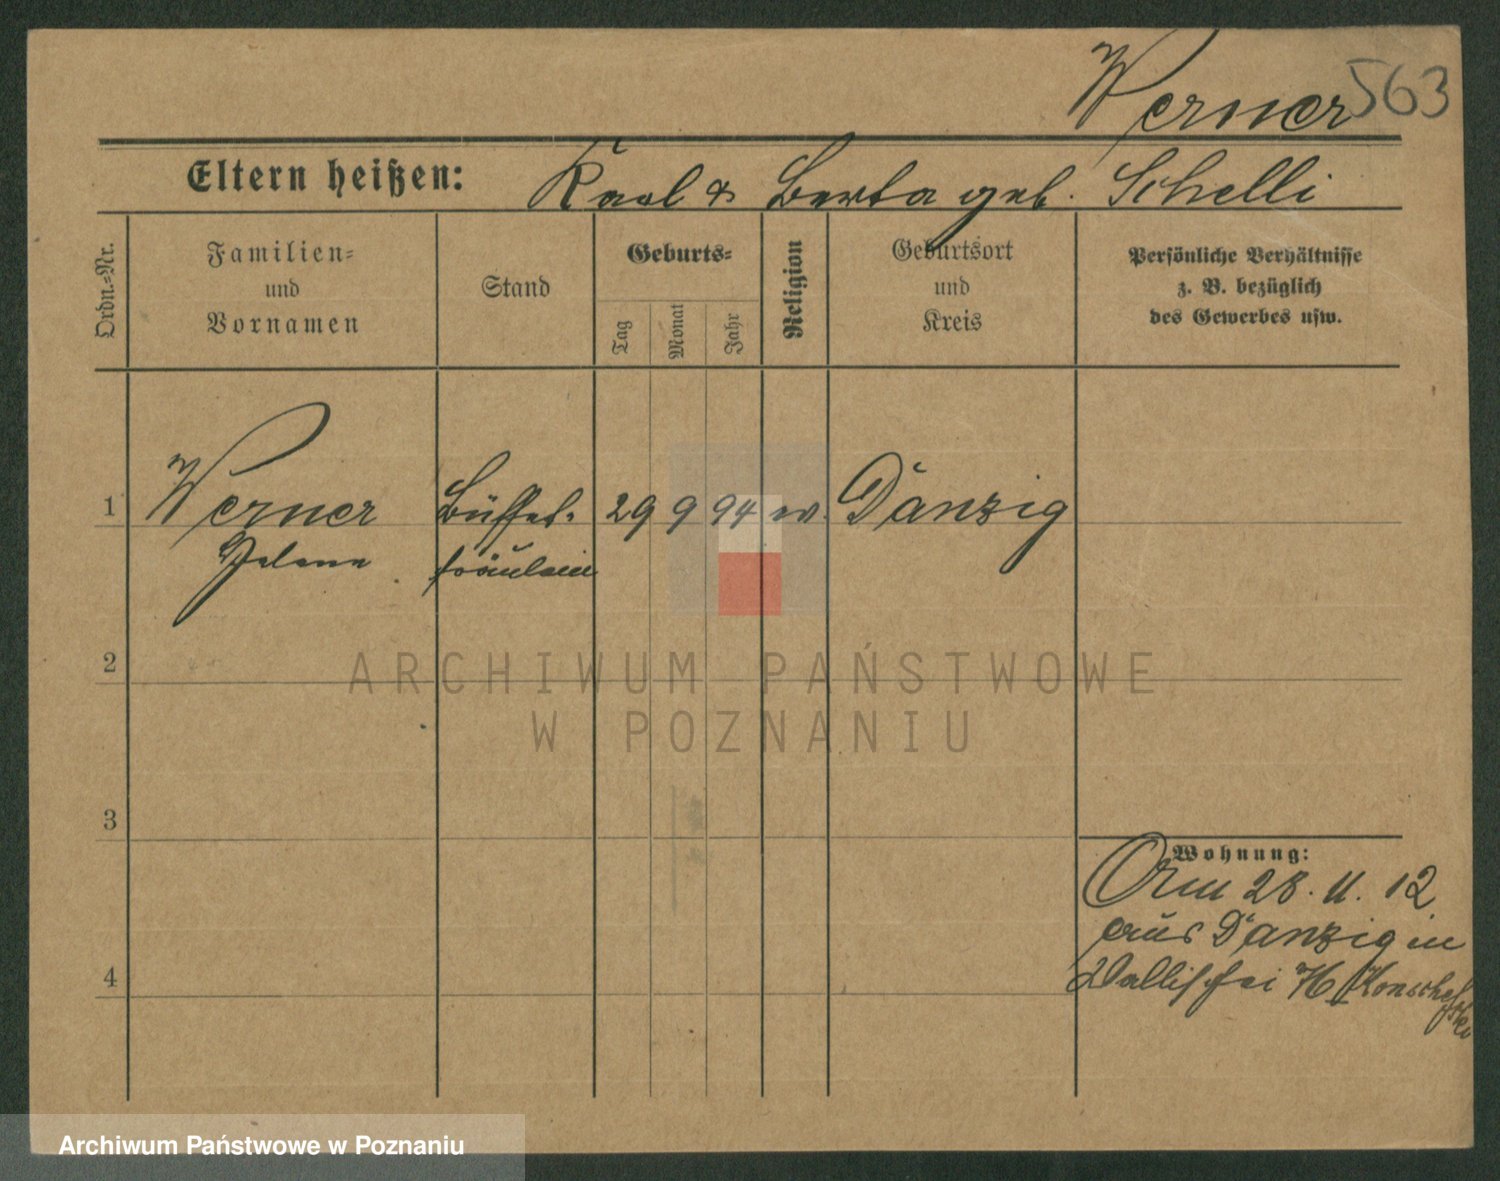 Werner 563
Eltern heißen: Karl & Berta geb. Schelli
Ordn.=Nr.
Familien=
und
Vornamen
Stand
Geburts=
Tag
Monat
Jahr
Religion
Geburtsort
und
Kreis
Persönliche Verhältnisse
z. B. bezüglich
des Gewerbes usw.
1 Werner Büffet- 29 9 94 ev. Danzig
Helene fräulein
2
ARCHIWUM PAŃSTWOWE
W POZNANIU
3
Wohnung:
Am 28. 11. 12
aus Danzig in
Wallischei
4
Archiwum Państwowe w Poznaniu